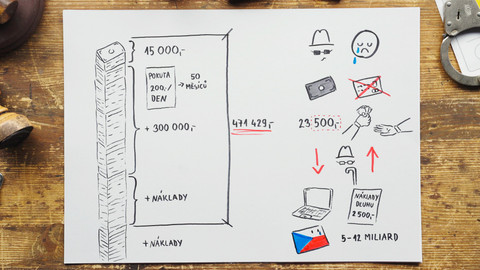 15 000,-
POKUTA
200,-/
DEN
50
MĚSÍCŮ
+ 300 000,-
471 429,-
+ NÁKLADY
+ NÁKLADY
23 500,-
NÁKLADY
DLUHU
2 500,-
5-12 MILIARD